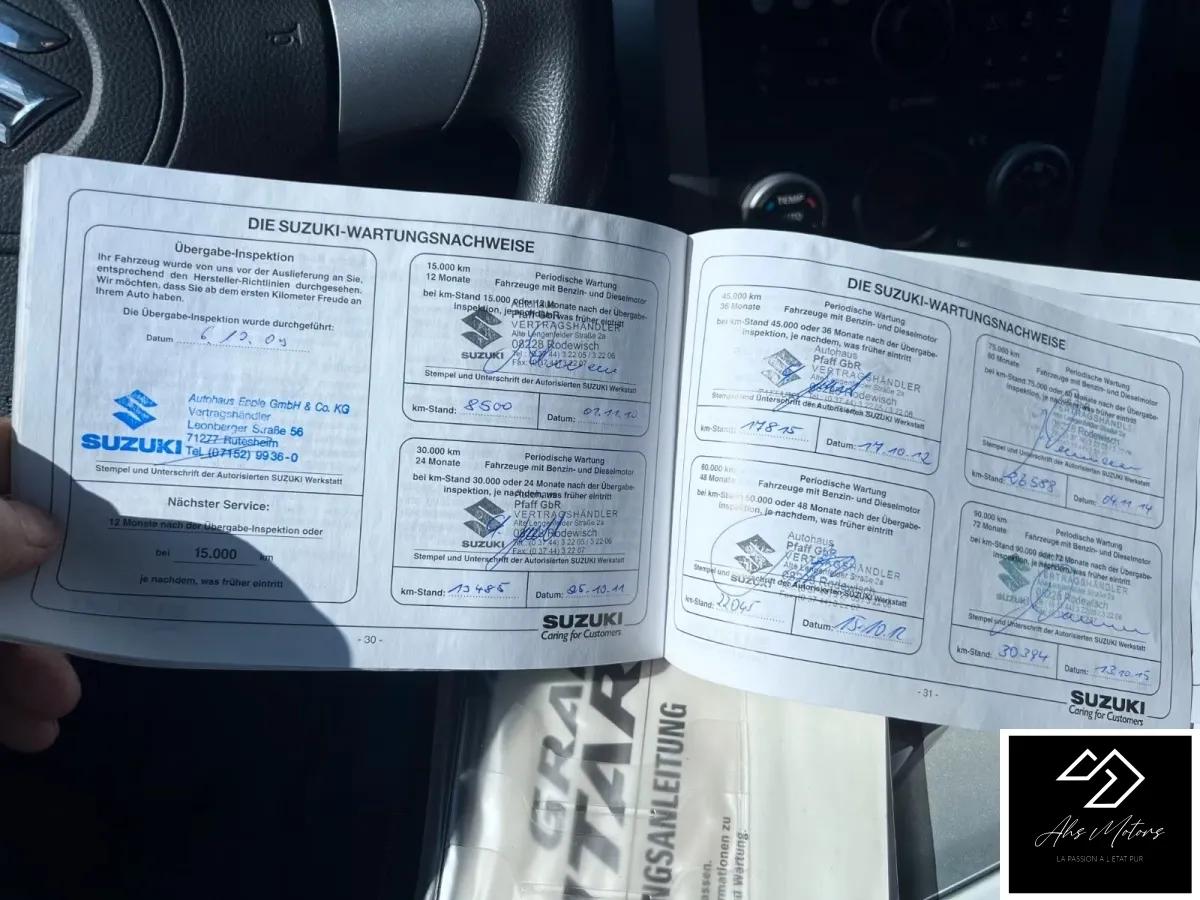 DIE SUZUKI-WARTUNGSNACHWEISE
Übergabe-Inspektion
Ihr Fahrzeug wurde von uns vor der Auslieferung an Sie,
entsprechend den Hersteller-Richtlinien durchgesehen.
Wir möchten, dass Sie ab dem ersten Kilometer Freude an
Ihrem Auto haben.
Die Übergabe-Inspektion wurde durchgeführt:
Datum
SUZUKI
Autohaus Epple GmbH & Co. KG
Vertragshändler
Leonberger Straße 56
71277 Rutesheim
Tel. (07152) 9936-0
Stempel und Unterschrift der Autorisierten SUZUKI Werkstatt
Nächster Service:
12 Monate nach der Übergabe-Inspektion oder
bei 15.000 km
je nachdem, was früher eintritt
15.000 km
12 Monate
Periodische Wartung
Fahrzeuge mit Benzin- und Dieselmotor
bei km-Stand 15.000 oder 12 Monate nach der Übergabe-
Inspektion, je nachdem, was früher eintritt
Autohaus
Pfaff GbR
VERTRAGSHÄNDLER
Alte Lengenfelder Straße 2a
08228 Rodewisch
SUZUKI
Stempel und Unterschrift der Autorisierten SUZUKI Werkstatt
km-Stand: 8500
Datum: 02.11.10
30.000 km
24 Monate
Periodische Wartung
Fahrzeuge mit Benzin- und Dieselmotor
bei km-Stand 30.000 oder 24 Monate nach der Übergabe-
inspektion, je nachdem, was früher eintritt
Pfaff GbR
VERTRAGSHÄNDLER
Alte Lengenfelder Straße 2a
08228 Rodewisch
SUZUKI
Tel. (0 37 44) 3 22 05 / 3 22 06
Fax: (0 37 44) 3 22 07
Stempel und Unterschrift der Autorisierten SUZUKI Werkstatt
km-Stand: 13485
Datum: 25.10.11
SUZUKI
Caring for Customers
- 30 -
DIE SUZUKI-WARTUNGSNACHWEISE
45.000 km
36 Monate
Periodische Wartung
Fahrzeuge mit Benzin- und Dieselmotor
bei km-Stand 45.000 oder 36 Monate nach der Übergabe-
inspektion, je nachdem, was früher eintritt
Autohaus
Pfaff GbR
VERTRAGSHÄNDLER
Rodewisch
Stempel und Unterschrift der Autorisierten SUZUKI Werkstatt
km-Stand: 17815
Datum: 17.10.12
60.000 km
48 Monate
Periodische Wartung
Fahrzeuge mit Benzin- und Dieselmotor
bei km-Stand 60.000 oder 48 Monate nach der Übergabe-
inspektion, je nachdem, was früher eintritt
Autohaus
Pfaff GbR
VERTRAGSHÄNDLER
Alte Lengenfelder Straße 2a
Rodewisch
SUZUKI
Stempel und Unterschrift der Autorisierten SUZUKI Werkstatt
km-Stand: 22045
Datum:
75.000 km
60 Monate
Periodische Wartung
Fahrzeuge mit Benzin- und Dieselmotor
bei km-Stand 75.000 oder 60 Monate nach der Übergabe-
inspektion, je nachdem, was früher eintritt
VERTRAGSHÄNDLER
Rodewisch
Stempel und Unterschrift der Autorisierten SUZUKI Werkstatt
km-Stand: 26558
Datum: 04.11.14
90.000 km
72 Monate
Periodische Wartung
Fahrzeuge mit Benzin- und Dieselmotor
bei km-Stand 90.000 oder 72 Monate nach der Übergabe-
inspektion, je nachdem, was früher eintritt
VERTRAGSHÄNDLER
Rodewisch
SUZUKI
Stempel und Unterschrift der Autorisierten SUZUKI Werkstatt
km-Stand: 30394
Datum: 13.10.15
SUZUKI
Caring for Customers
- 31 -
TEMP
AUTO
GRA
TAR
NGSANLEITUNG
assen.
rmationen zu
d Wartung.
Ahs Motors
LA PASSION A L ETAT PUR